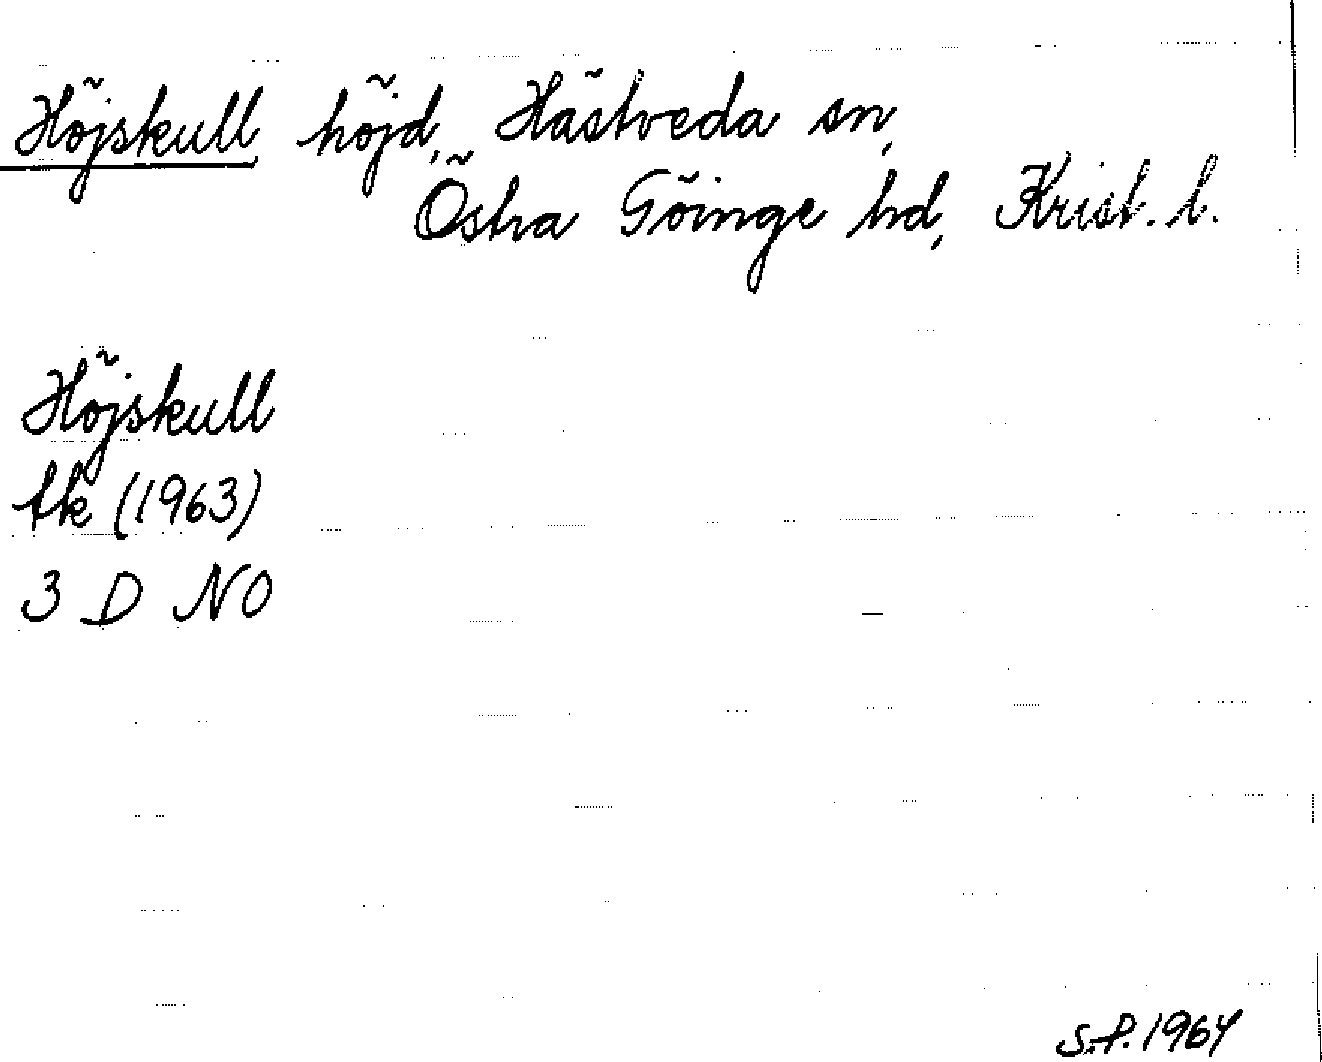 Höjskull höjd, Hästveda sn,
Östra Göinge hd, Krist. l.
Höjskull
tk (1963)
3 D NO
S.P. 1964